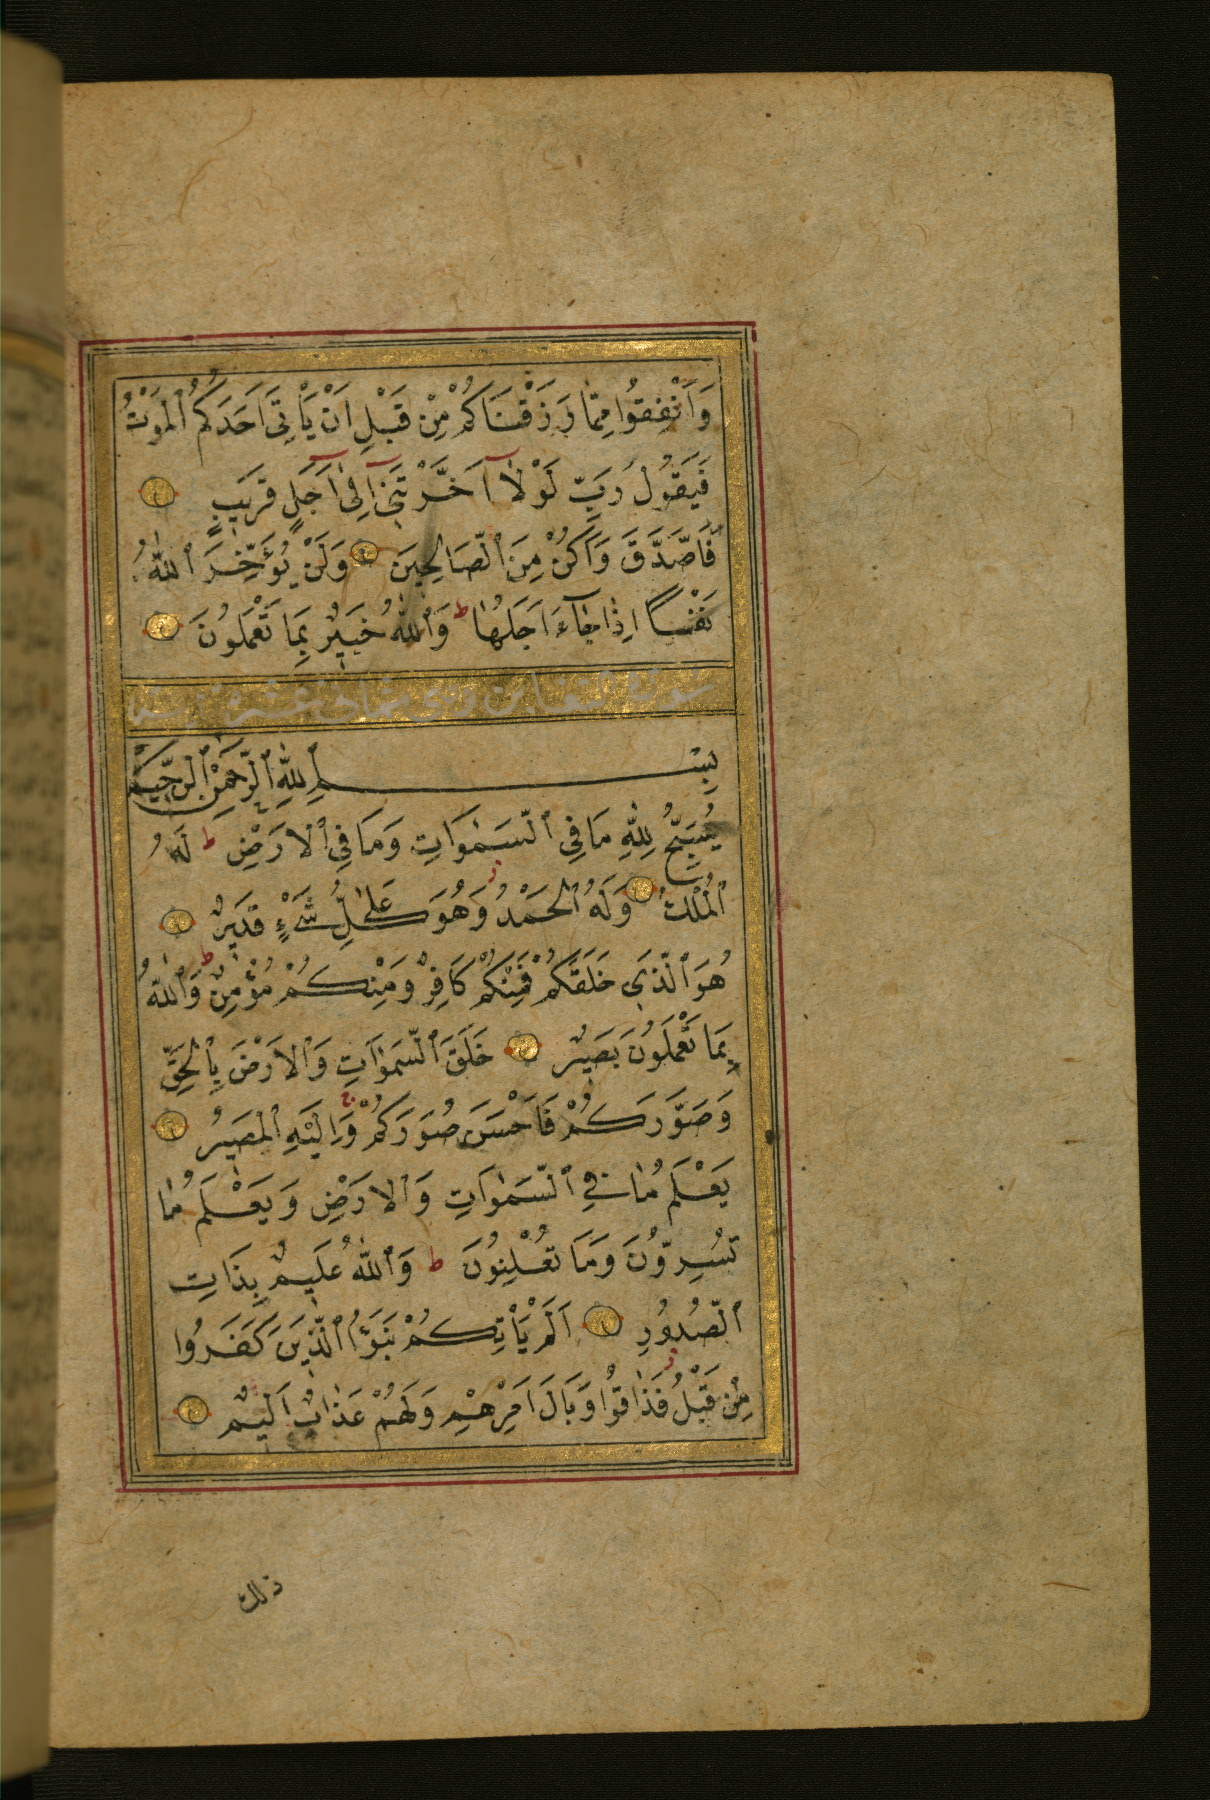 وَاَنْفِقُوا مِمَّا رَزَقْنَاكُمْ مِنْ قَبْلِ اَنْ يَأْتِىَ اَحَدَكُمُ ٱلْمَوْتُ
فَيَقُولَ رَبِّ لَوْلَآ اَخَّرْتَنِىٓ اِلٰٓى اَجَلٍ قَرِيبٍ
فَاَصَّدَّقَ وَاَكُنْ مِنَ ٱلصَّالِحِينَ وَلَنْ يُؤَخِّرَ ٱللّٰهُ
نَفْسًا اِذَا جَآءَ اَجَلُهَا ط وَٱللّٰهُ خَبِيرٌ بِمَا تَعْمَلُونَ
سورة التغابن وهى ثمانى عشرة
بِسْمِ ٱللّٰهِ ٱلرَّحْمٰنِ ٱلرَّحِيمِ
يُسَبِّحُ لِلّٰهِ مَا فِى ٱلسَّمٰوَاتِ وَمَا فِى ٱلْاَرْضِ ط لَهُ
ٱلْمُلْكُ وَلَهُ ٱلْحَمْدُ ز وَهُوَ عَلٰى كُلِّ شَىْءٍ قَدِيرٌ
هُوَ ٱلَّذِى خَلَقَكُمْ فَمِنْكُمْ كَافِرٌ وَمِنْكُمْ مُؤْمِنٌ ط وَٱللّٰهُ
بِمَا تَعْمَلُونَ بَصِيرٌ خَلَقَ ٱلسَّمٰوَاتِ وَٱلْاَرْضَ بِٱلْحَقِّ
وَصَوَّرَكُمْ فَاَحْسَنَ صُوَرَكُمْ ج وَاِلَيْهِ ٱلْمَصِيرُ
يَعْلَمُ مَا فِى ٱلسَّمٰوَاتِ وَٱلْاَرْضِ وَيَعْلَمُ مَا
تُسِرُّونَ وَمَا تُعْلِنُونَ ط وَٱللّٰهُ عَلِيمٌ بِذَاتِ
ٱلصُّدُورِ اَلَمْ يَأْتِكُمْ نَبَؤُا ٱلَّذِينَ كَفَرُوا
مِنْ قَبْلُ ز فَذَاقُوا وَبَالَ اَمْرِهِمْ وَلَهُمْ عَذَابٌ اَلِيمٌ
ذلك